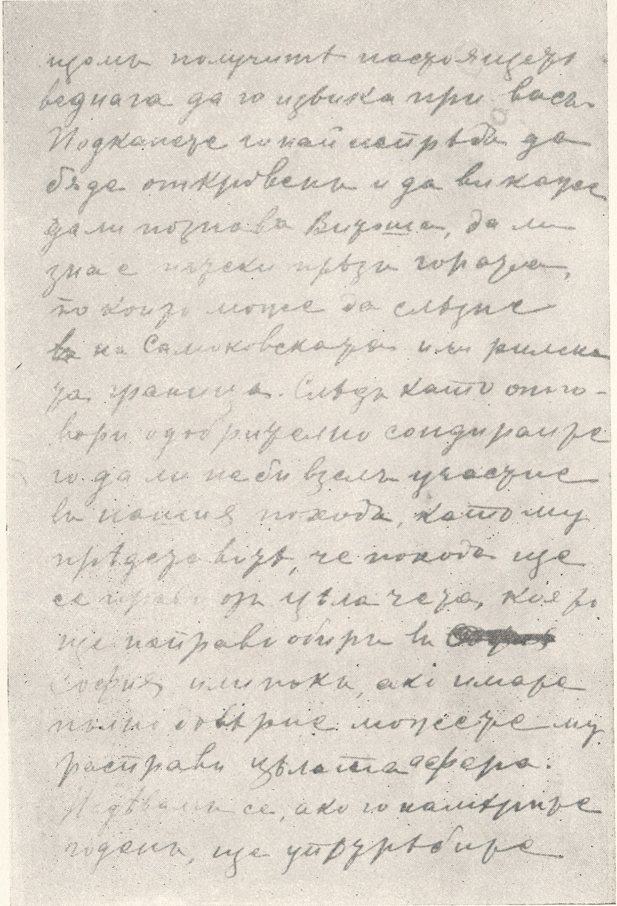 щомъ получите настоящето
веднага да го извика при васъ.
Подканете го най напрѣдъ да
бѫде откровенъ и да ви каже
дали познава Витоша, да ли
знае пътеки прѣзъ гората,
по които може да слѣзне
въ на Самоковската или рилска
та граница. Слѣдъ като отго-
вори одобрително сондирайте
го да ли не би взелъ участие
въ нашия похода, като му
прѣдставите, че похода ще
се прави отъ цѣла чета, която
ще направи обиръ въ
София или пъкъ, ако имате
пълно довѣрие можете му
разправи цѣлата афера.
Надѣвамъ се, ако го намѣрите
годенъ, ще употрѣбите